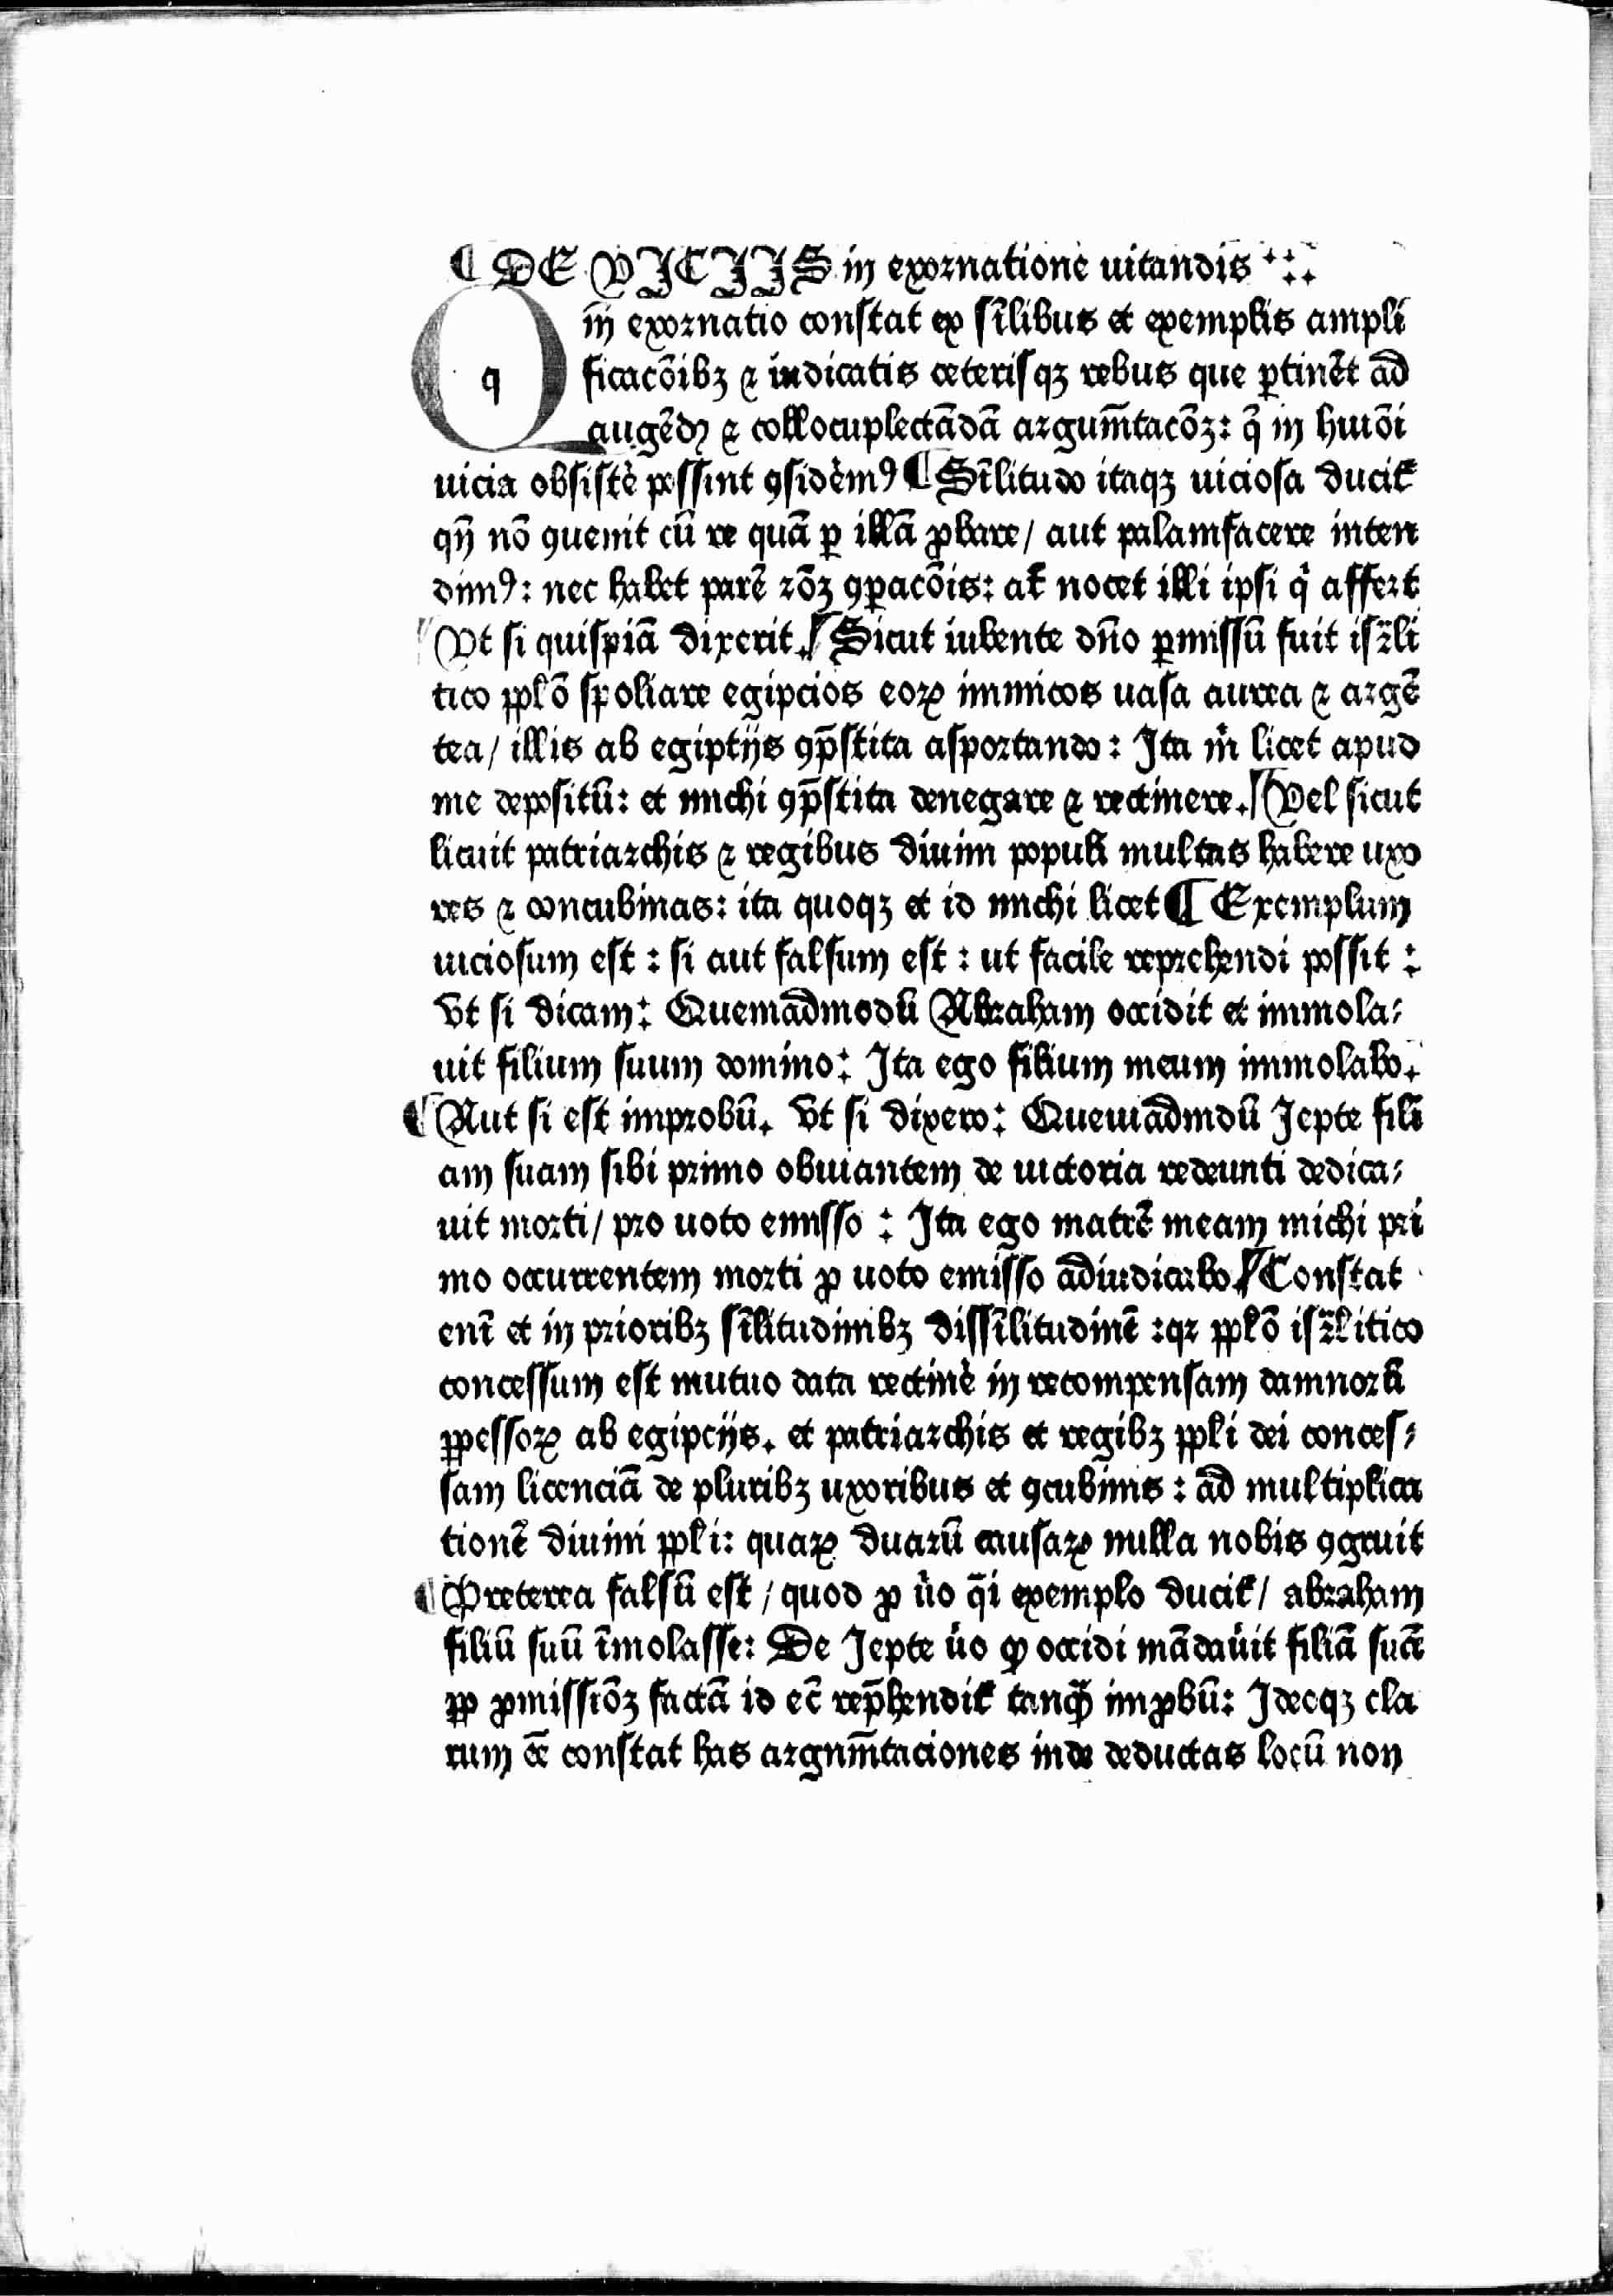 ¶ DE VICIIS in exornatione uitandis
Qm̄ exornatio constat ex sīlibus et exemplis ampli
ficacōibꝫ ⁊ iudicatis ceterisqꝫ rebus que ꝑtinēt ad
augēdꝫ ⁊ collocuplectādā argum̄tacōꝫ: q̄ in huiōi
uicia obsistè possint ꝯsidèmꝰ ¶ Sīlitudo itaqꝫ uiciosa ducit᷑
qn̄ nō ꝯuenit cū re quā ꝑ illā ꝓbare/ aut palamfacere inten
dimꝰ: nec habet parē rōꝫ ꝯꝑacōis: at᷑ nocet illi ipsi q̇ affert
Vt si quispiā dixerit. Sicut iubente dn̄o ꝑmissū fuit isr̄li
tico pplō spoliare egipcios eoꝝ inimicos uasa aurea ⁊ argē
tea/ illis ab egiptijs ꝯp̄stita asportando: Ita m̊ licet apud
me depositū: et michi ꝯp̄stita denegare ⁊ rectinere. Vel sicut
licuit patriarchis ⁊ regibus diuini populi multas habere uxo
res ⁊ concubinas: ita quoqꝫ et id michi licet ¶ Exemplum
uiciosum est : si aut falsum est : ut facile reprehendi possit :
Vt si dicam: Quemadmodū Abraham occidit et immola⸗
uit filium suum domino: Ita ego filium meum immolabo.
¶ Aut si est improbū. Vt si dixero: Quemadmodū Jepte fili
am suam sibi primo obuiantem de uictoria redeunti dedica⸗
uit morti/ pro uoto emisso : Ita ego matrē meam michi pri
mo occurrentem morti ꝓ uoto emisso adiudicabo. Constat
enī et in prioribꝫ sīlitudinibꝫ dissīlitudinē :qꝛ pplō isr̄litico
concessum est mutuo data rectinè in recompensam damnorū
ꝑpessoꝝ ab egipcijs. et patriarchis et regibꝫ ppli dei conces⸗
sam licenciā de pluribꝫ uxoribus et ꝯcubinis : ad multiplica
tionē diuini ppli: quaꝝ duarū causaꝝ nulla nobis ꝯgruit
¶ Preterea falsū est / quod ꝓ ùo q̄i exemplo ducit᷑/ abraham
filiū suū īmolasse: De Jepte ùo ꝙ occidi mādauit filiā suā
ꝓp ꝓmissiōꝫ factā id ec̄ rep̄hendit᷑ tanꝙ̄ imꝓbū: Ideoqꝫ cla
rum ēe constat has argum̄taciones inde deductas locū non